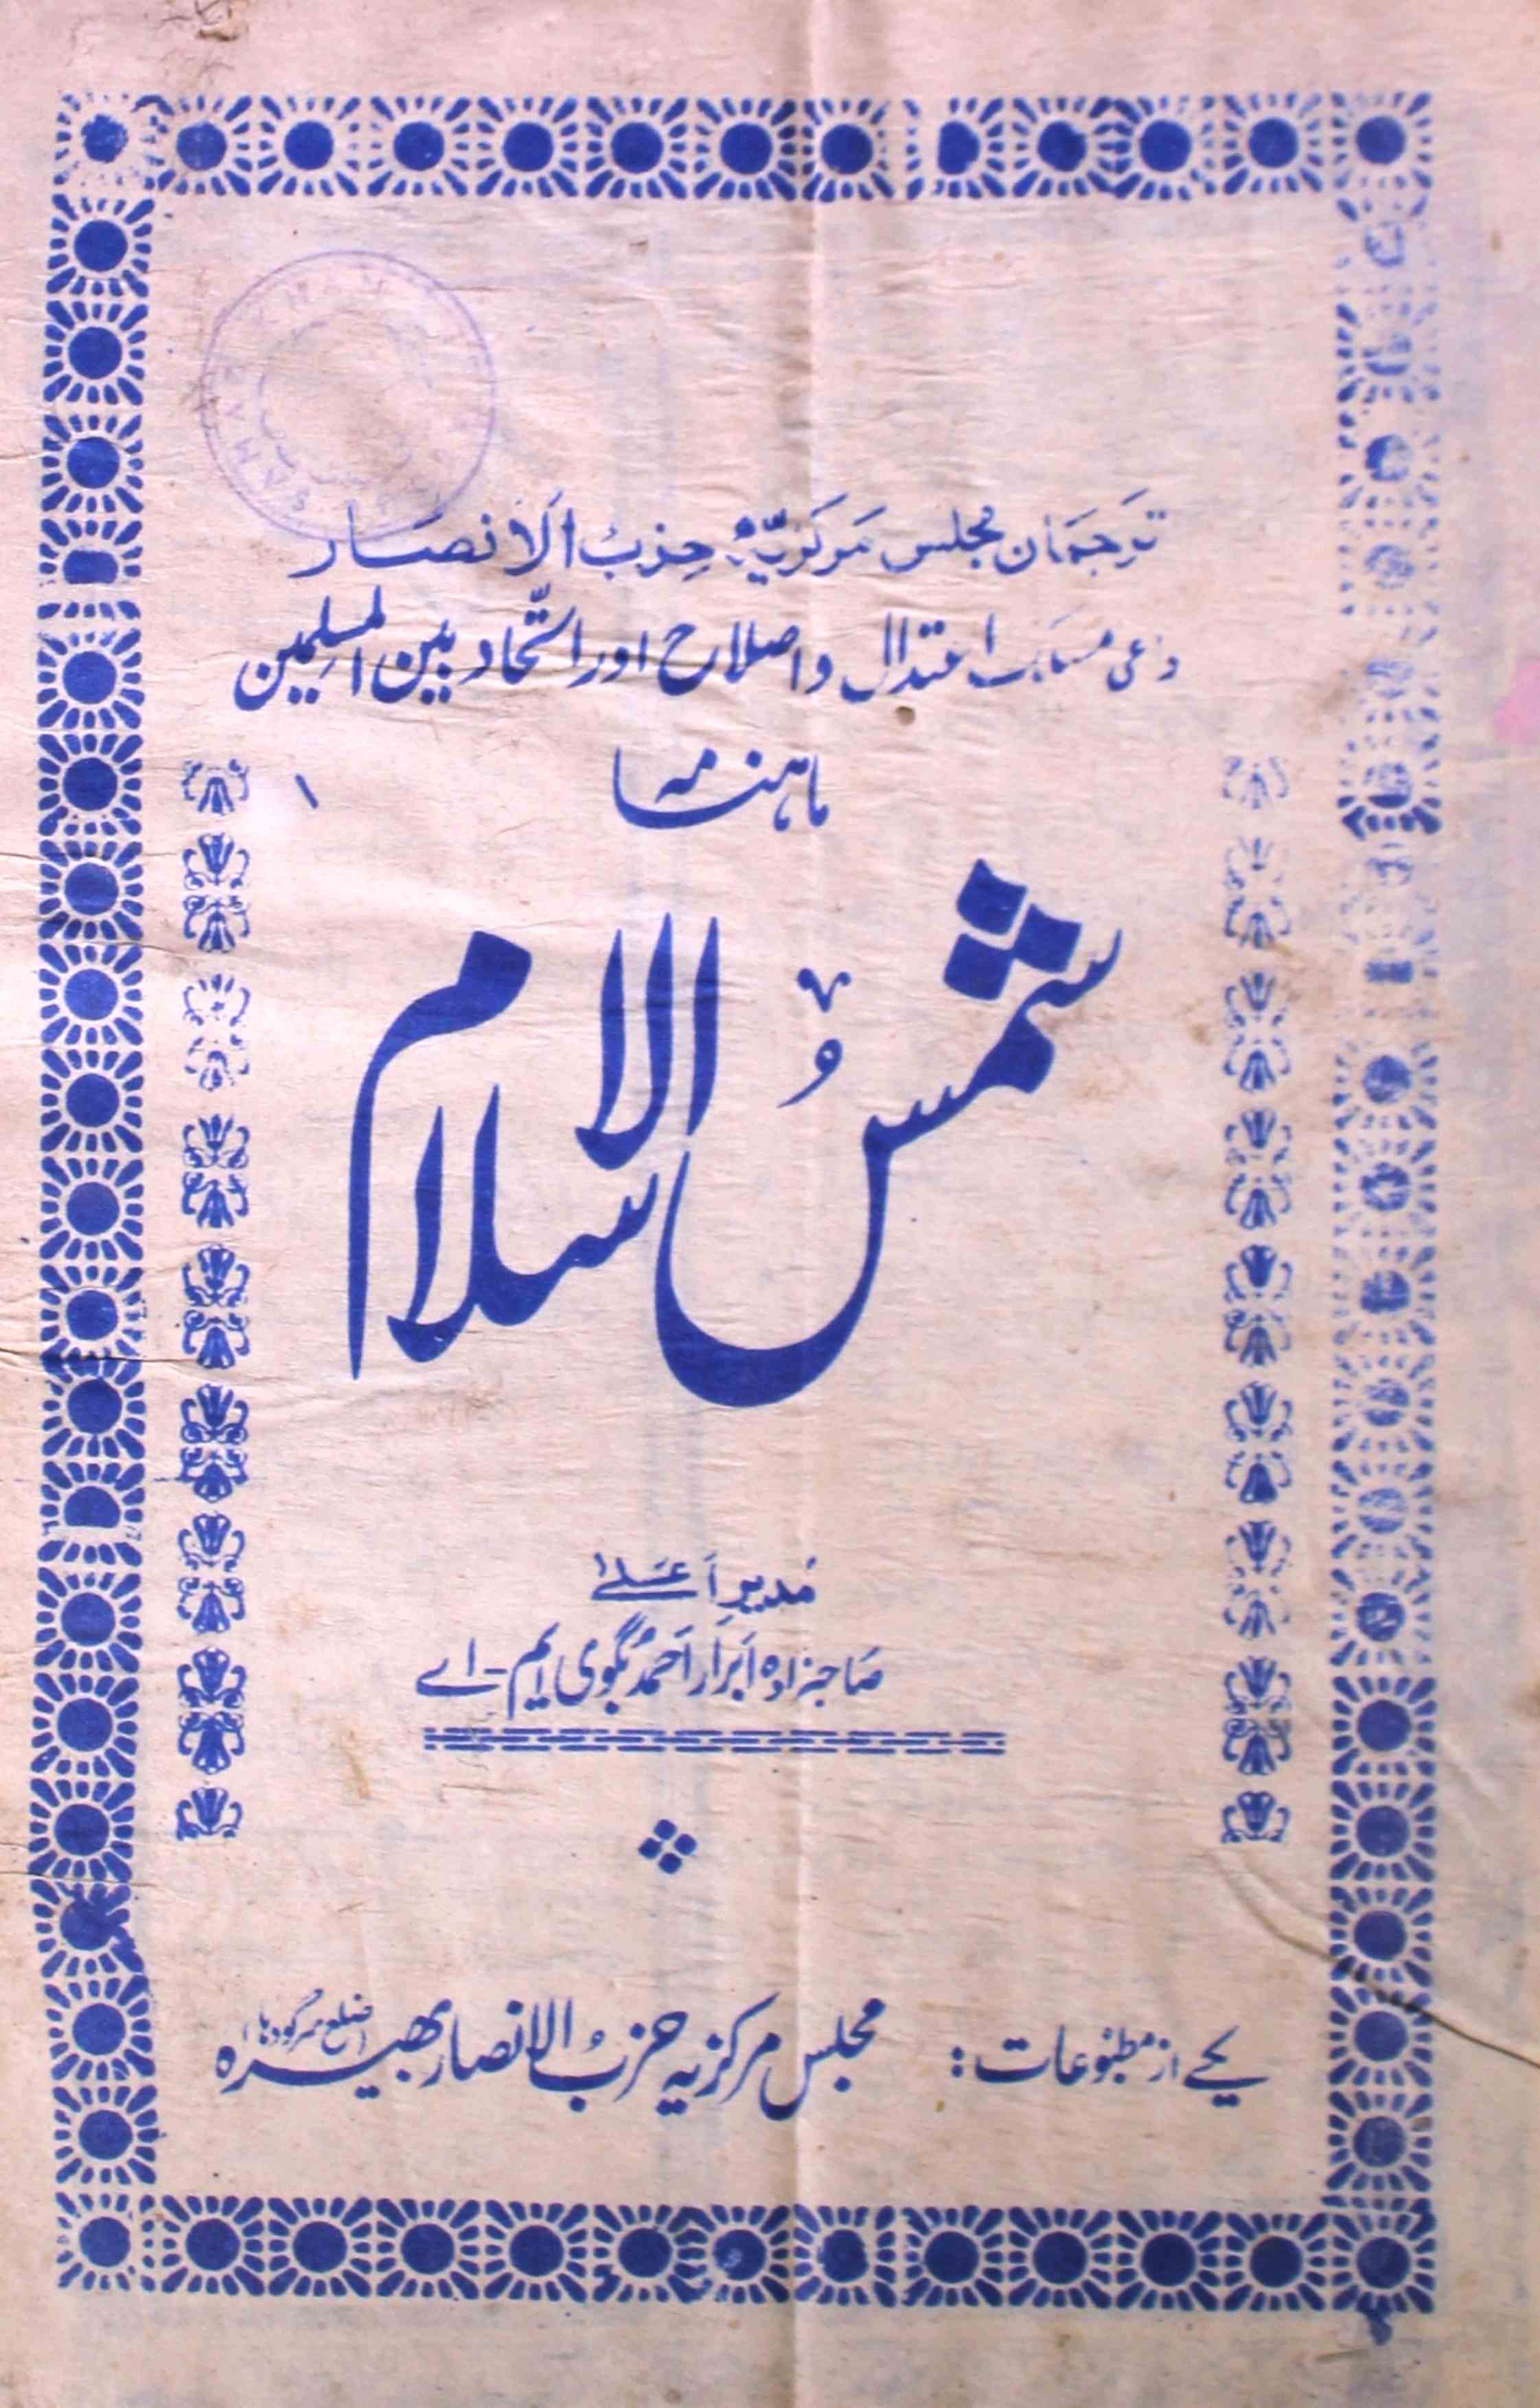 ترجمان مجلس مرکزیہ حزب الانصار
داعی مسلک اعتدال و اصلاح اور اتحاد بین المسلمین
ماہنامہ
شمسُ الاسلام
مدیرِ اَعلےٰ
صاحبزادہ ابرار احمد بگوی ایم-اے
یکے از مطبوعات : مجلس مرکزیہ حزبُ الانصار بھیرہ (ضلع سرگودہا)